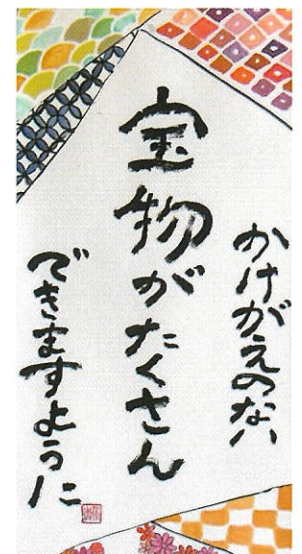 かけがえのない
宝物がたくさん
できますように